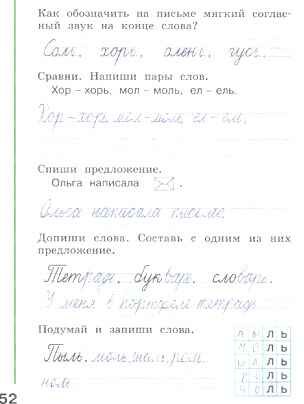 Как обозначить на письме мягкий соглас-
ный звук на конце слова?
Соль, хорь, олень, гусь.
Сравни. Напиши пары слов.
Хор – хорь, мол – моль, ел – ель.
Хор – хорь, мол – моль, ел – ель.
Спиши предложение.
Ольга написала .
Ольга написала письмо.
Допиши слова. Составь с одним из них
предложение.
Тетрадь, букварь, словарь.
У меня в портфеле тетрадь.
Подумай и запиши слова.
Пыль, моль,
ноль
52